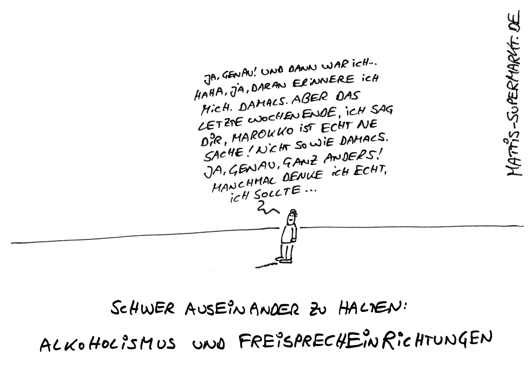 JA, GENAU! UND DANN WAR ICH...
HAHA, JA, DARAN ERINNERE ICH
MICH. DAMALS. ABER DAS
LETZTE WOCHENENDE, ICH SAG
DIR, MAROKKO IST ECHT NE
SACHE! NICHT SO WIE DAMALS.
JA, GENAU, GANZ ANDERS!
MANCHMAL DENKE ICH ECHT,
ICH SOLLTE ...
MATTIS-SUPERMARKT.DE
SCHWER AUSEINANDER ZU HALTEN:
ALKOHOLISMUS UND FREISPRECHEINRICHTUNGEN